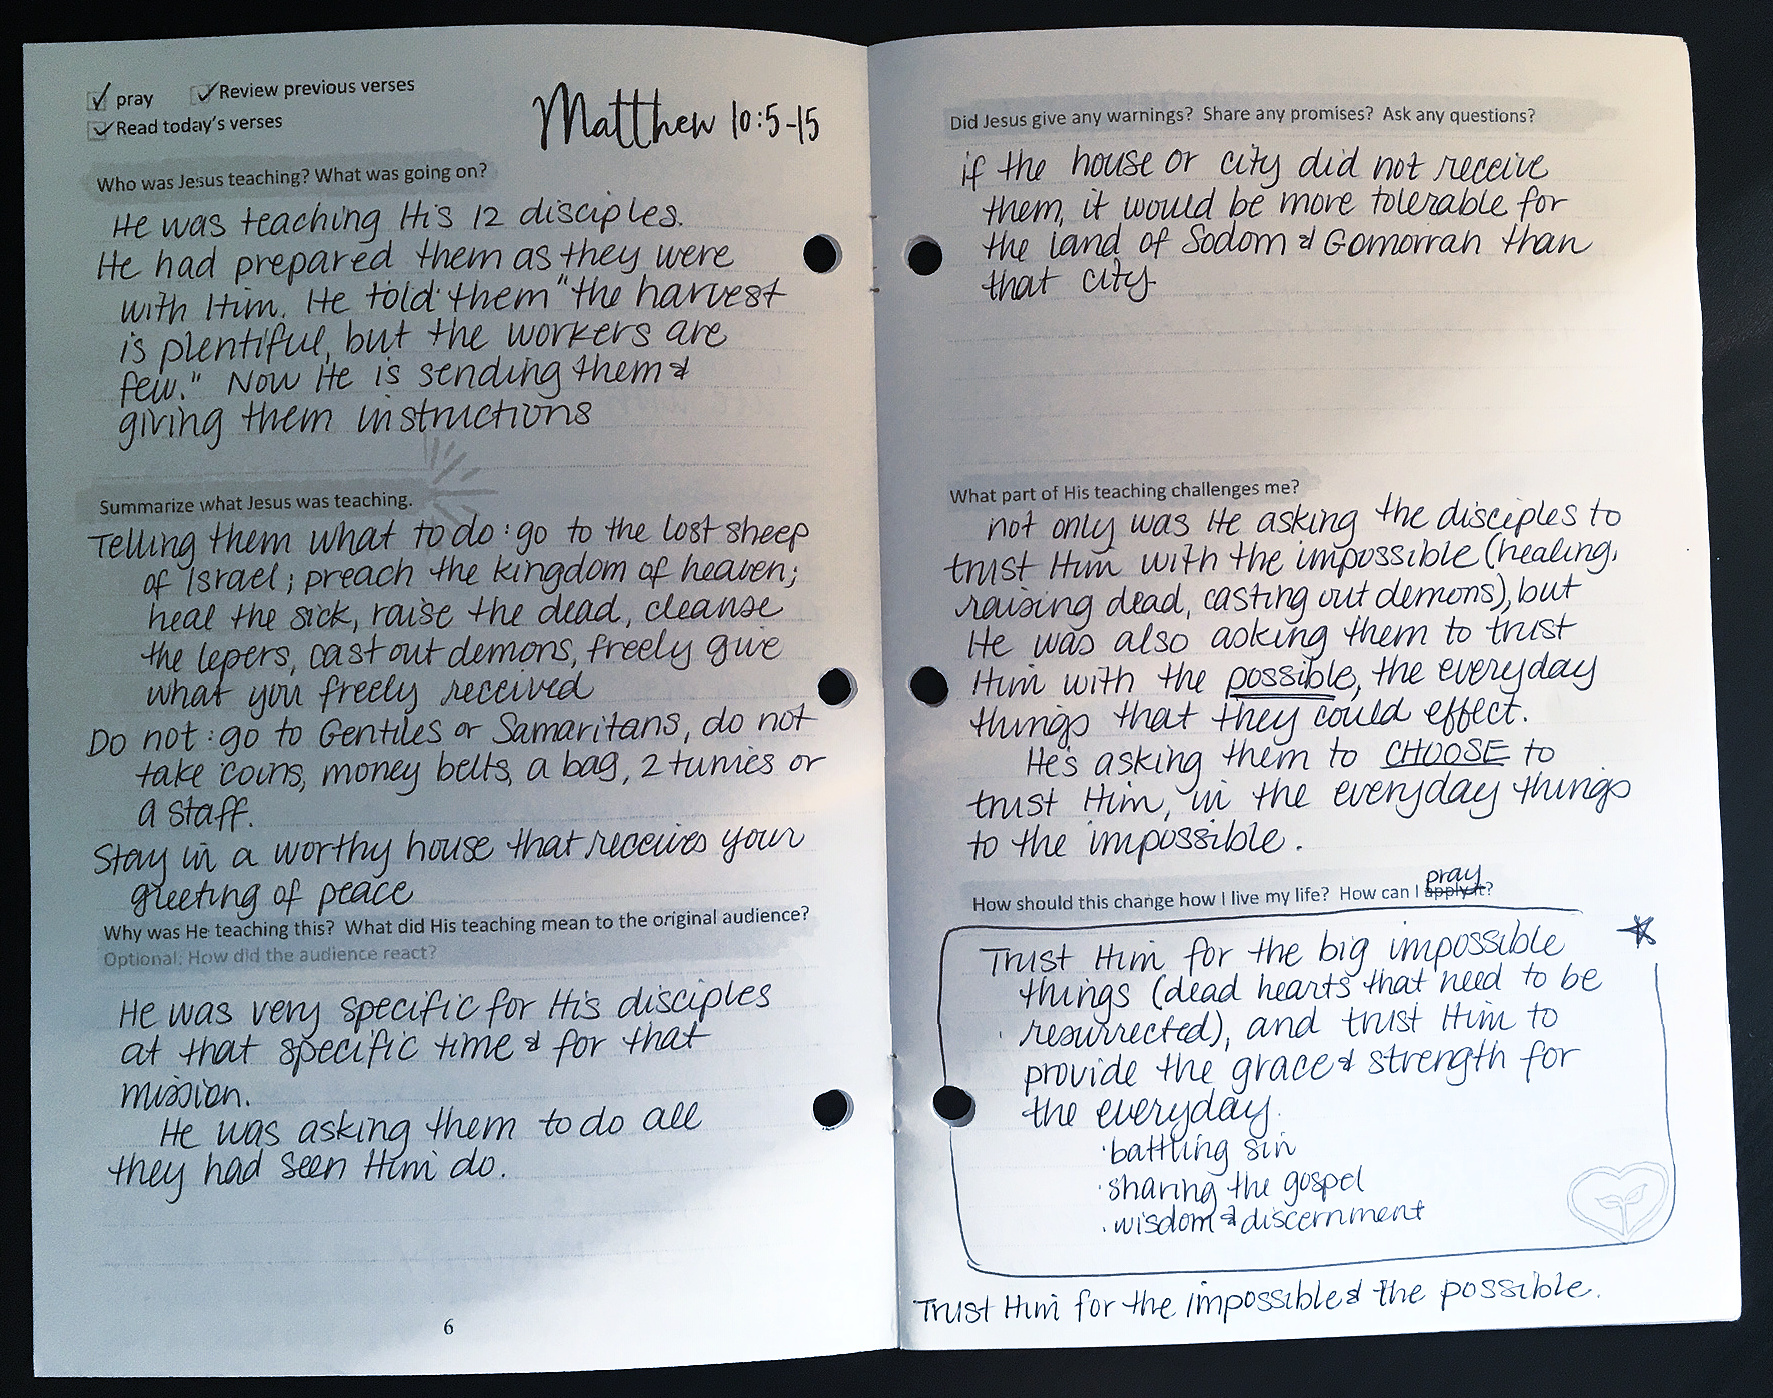 pray Review previous verses
Read today's verses
Matthew 10:5-15
Who was Jesus teaching? What was going on?
He was teaching His 12 disciples.
He had prepared them as they were
with Him. He told them "the harvest
is plentiful, but the workers are
few." Now He is sending them &
giving them instructions
Summarize what Jesus was teaching.
Telling them what to do: go to the lost sheep
of Israel; preach the kingdom of heaven;
heal the sick, raise the dead, cleanse
the lepers, cast out demons, freely give
what you freely received
Do not: go to Gentiles or Samaritans, do not
take coins, money belts, a bag, 2 tunics or
a staff.
Stay in a worthy house that receives your
greeting of peace
Why was He teaching this? What did His teaching mean to the original audience?
Optional: How did the audience react?
He was very specific for His disciples
at that specific time & for that
mission.
He was asking them to do all
they had seen Him do.
6
Did Jesus give any warnings? Share any promises? Ask any questions?
if the house or city did not receive
them, it would be more tolerable for
the land of Sodom & Gomorrah than
that city.
What part of His teaching challenges me?
not only was He asking the disciples to
trust Him with the impossible (healing,
raising dead, casting out demons), but
He was also asking them to trust
Him with the possible, the everyday
things that they could effect.
He's asking them to CHOOSE to
trust Him, in the everyday things
to the impossible.
pray
How should this change how I live my life? How can I apply it?
Trust Him for the big impossible
things (dead hearts that need to be
resurrected), and trust Him to
provide the grace & strength for
the everyday.
·battling sin
·sharing the gospel
·wisdom & discernment
Trust Him for the impossible & the possible.